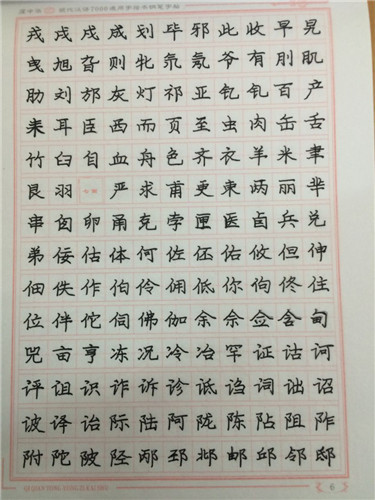 现代汉语7000通用字楷书钢笔字帖
戎戍戌成划毕邪此收早旯
曳旭旮则牝爷有刖肌
肋刘邡灰灯祁亚钆钇百产
耒耳臣西而页至虫肉缶舌
竹臼自血舟色齐衣羊米聿
艮羽七画严求甫更束两丽芈
串囱卵甬克孛匣医卤兵兑
弟佞估体何佐伾佑攸但伸
佃佚作伯伶佣低你佝佟住
位伴佗伺佛伽余佘佥含甸
兕亩亨冻况冷冶罕证诂诃
评诅识诈诉诊诋诌词诎诏
诐译诒际陆阿陇陈阽阻阼
附陀陂陉邴邳邶邮邱邻邸
6